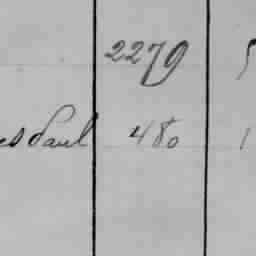 2279 5
es Paul 480 1